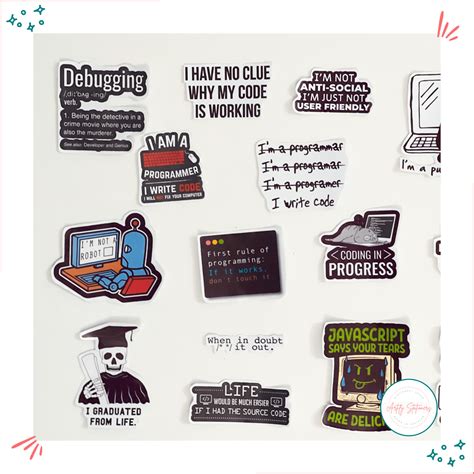 Debugging
/di:ˈbʌɡ·ɪŋ/
verb.
1. Being the detective in a
crime movie where you are
also the murderer.
See also: Developer and Genius
I HAVE NO CLUE
WHY MY CODE
IS WORKING
I'M NOT
ANTI-SOCIAL
I'M JUST NOT
USER FRIENDLY
I'm a pu
I AM A
PROGRAMMER
I WRITE CODE
I WILL NOT FIX YOUR COMPUTER
I'm a programmar
I'm a programar
I'm a programer
I write code
I'M NOT A
ROBOT
First rule of
programming:
If it works,
don't touch it
CODING IN
PROGRESS
I GRADUATED
FROM LIFE.
When in doubt
/**/it out.
LIFE
WOULD BE MUCH EASIER
IF I HAD THE SOURCE CODE
JAVASCRIPT
SAYS YOUR TEARS
ARE DELIC